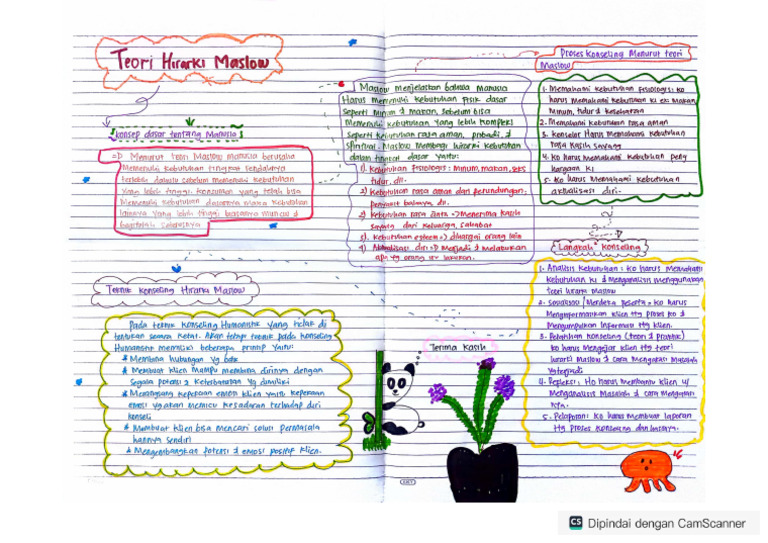 Teori Hirarki Maslow
konsep dasar tentang Manusia
=D Menurut Teori Maslow Manusia berusaha
Memenuhi kebutuhan tingkat rendahnya
terlebih dahulu sebelum memenuhi kebutuhan
Yang lebih tinggi. Konsumen yang telah bisa
Memenuhi kebutuhan dasarnya maka kebutuhan
lainnya Yang lebih tinggi biasanya muncul &
begitulah seterusnya
Maslow Menjelaskan bahwa manusia
Harus memenuhi kebutuhan fisik dasar
seperti minum & makan, sebelum bisa
Memenuhi kebutuhan Yang lebih kompleks
seperti kebutuhan rasa aman, pribadi &
spiritual. Maslow Membagi hirarki kebutuhan
dalam tingkat dasar yaitu:
1). Kebutuhan fisiologis: Minum, makan, seks
tidur, dll.
2) Kebutuhan rasa aman dari perlindungan;
Penyakit bahaya dll.
2) Kebutuhan rasa Cinta => Menerima kasih
sayang dari keluarga, sahabat
3). Kebutuhan esteem => dihargai orang lain
4) Aktualisasi diri =D Menjadi & Melakukan
apa yg orang itu
Proses Konseling Menurut teori
Maslow
1. Memahami kebutuhan fisiologis: ko
harus memahami kebutuhan ki eki makan
Minum, tidur &
2. Memahami kebutuhan rasa aman
3. konselor Harus Memahami kebutuhan
rasa kasih Sayang
4. Ko harus Memahami kebutuhan peng
hargaan ki
5. Ko harus Memahami kebutuhan
aktualisasi diri.
Langkah" Konseling
1. Analisis Kebutuhan: ko harus memahami
kebutuhan ki & Menganalisis menggunakan
teori hirarki maslow
2. Sosialisasi / Merdeka Peserta: ko harus
Menginformasikan klien ttg proses ko &
Mengumpulkan Informasi ttg klien.
3. Pelatihan Konseling (teori & praktik)
ko harus Mengajar klien ttg teori
hirarki Maslow & cara Mengatasi Masalah
Yg terjadi
4. Refleksi: Ko harus membantu klien u/
Menganalisis Masalah & cara Mengatasi
nya.
5. Pelaporan: ko harus membuat laporan
ttg proses konseling dan hasilnya.
Teknik Konseling Hirarki Maslow
Pada teknik konseling Humanistik yang telah di
tentukan secara ketat. Akan tetapi teknik pada konseling
Humanistik memiliki beberapa prinsip yaitu:
* Membina hubungan yg baik
* Membuat klien mampu menerima dirinya dengan
segala potensi & keterbatasan Yg dimiliki
* Merangsang kepekaan emosi klien yaitu kepekaan
emosi yg akan memicu kesadaran terhadap diri
konseli
* Membuat klien bisa mencari solusi permasala
hannya sendiri
* Mengembangkan potensi & emosi positif klien.
Terima Kasih
CS Dipindai dengan CamScanner